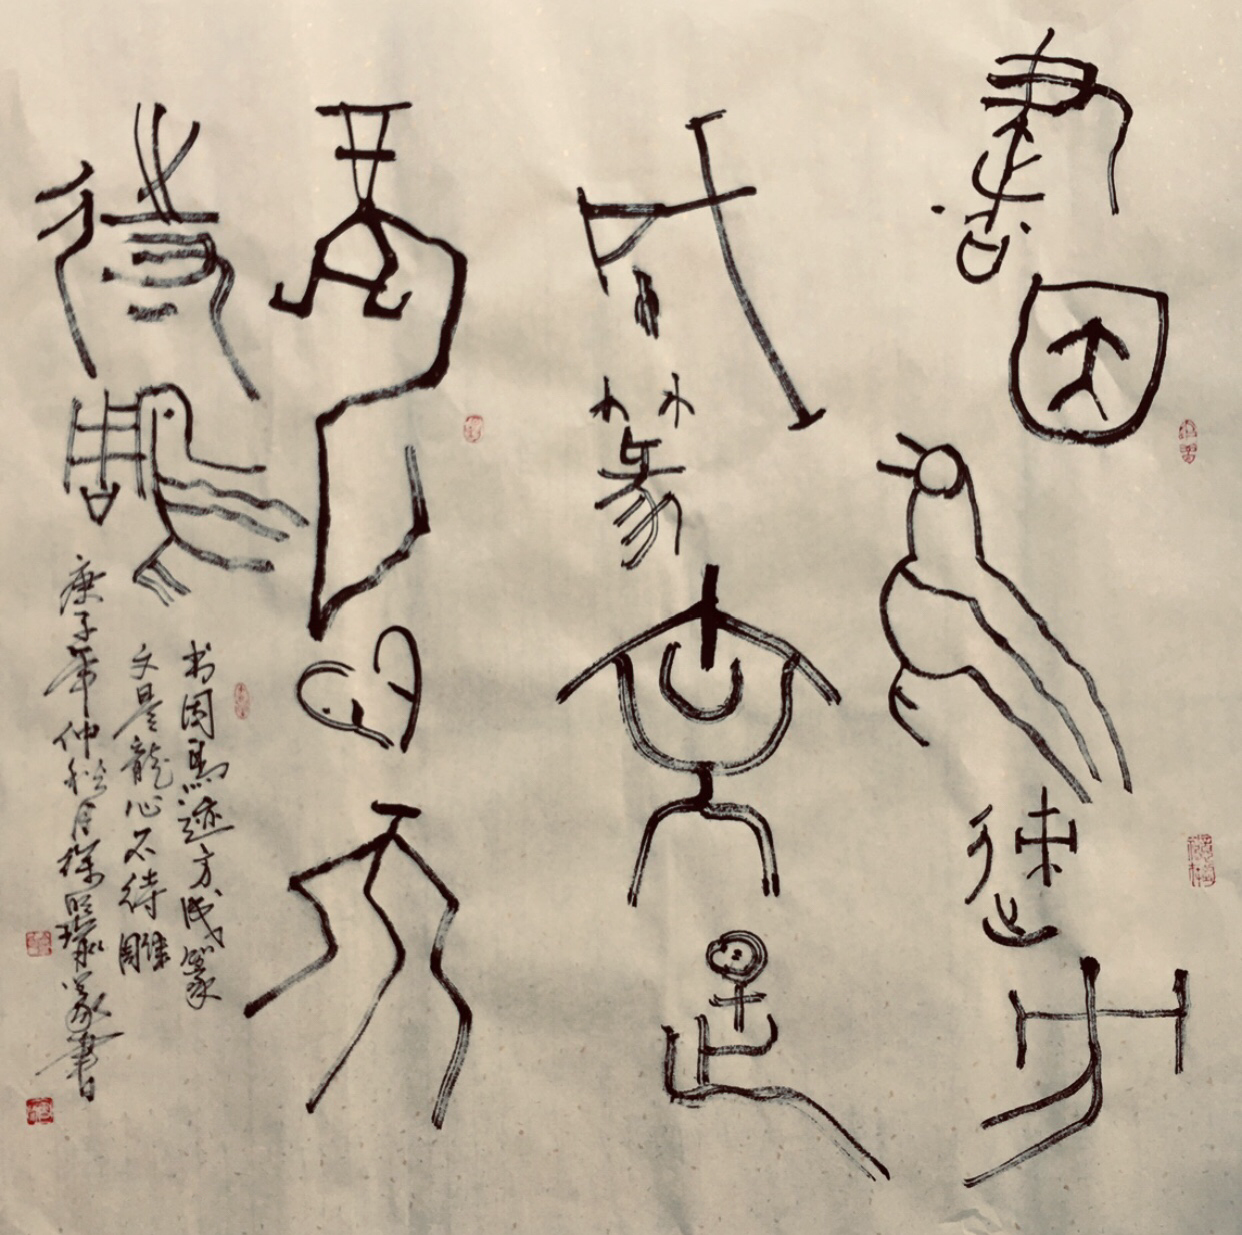 書因鳥迹方
成篆文是
龍心不
待雕
书因鳥迹方成篆
文是龍心不待雕
庚子年仲秋月篆書